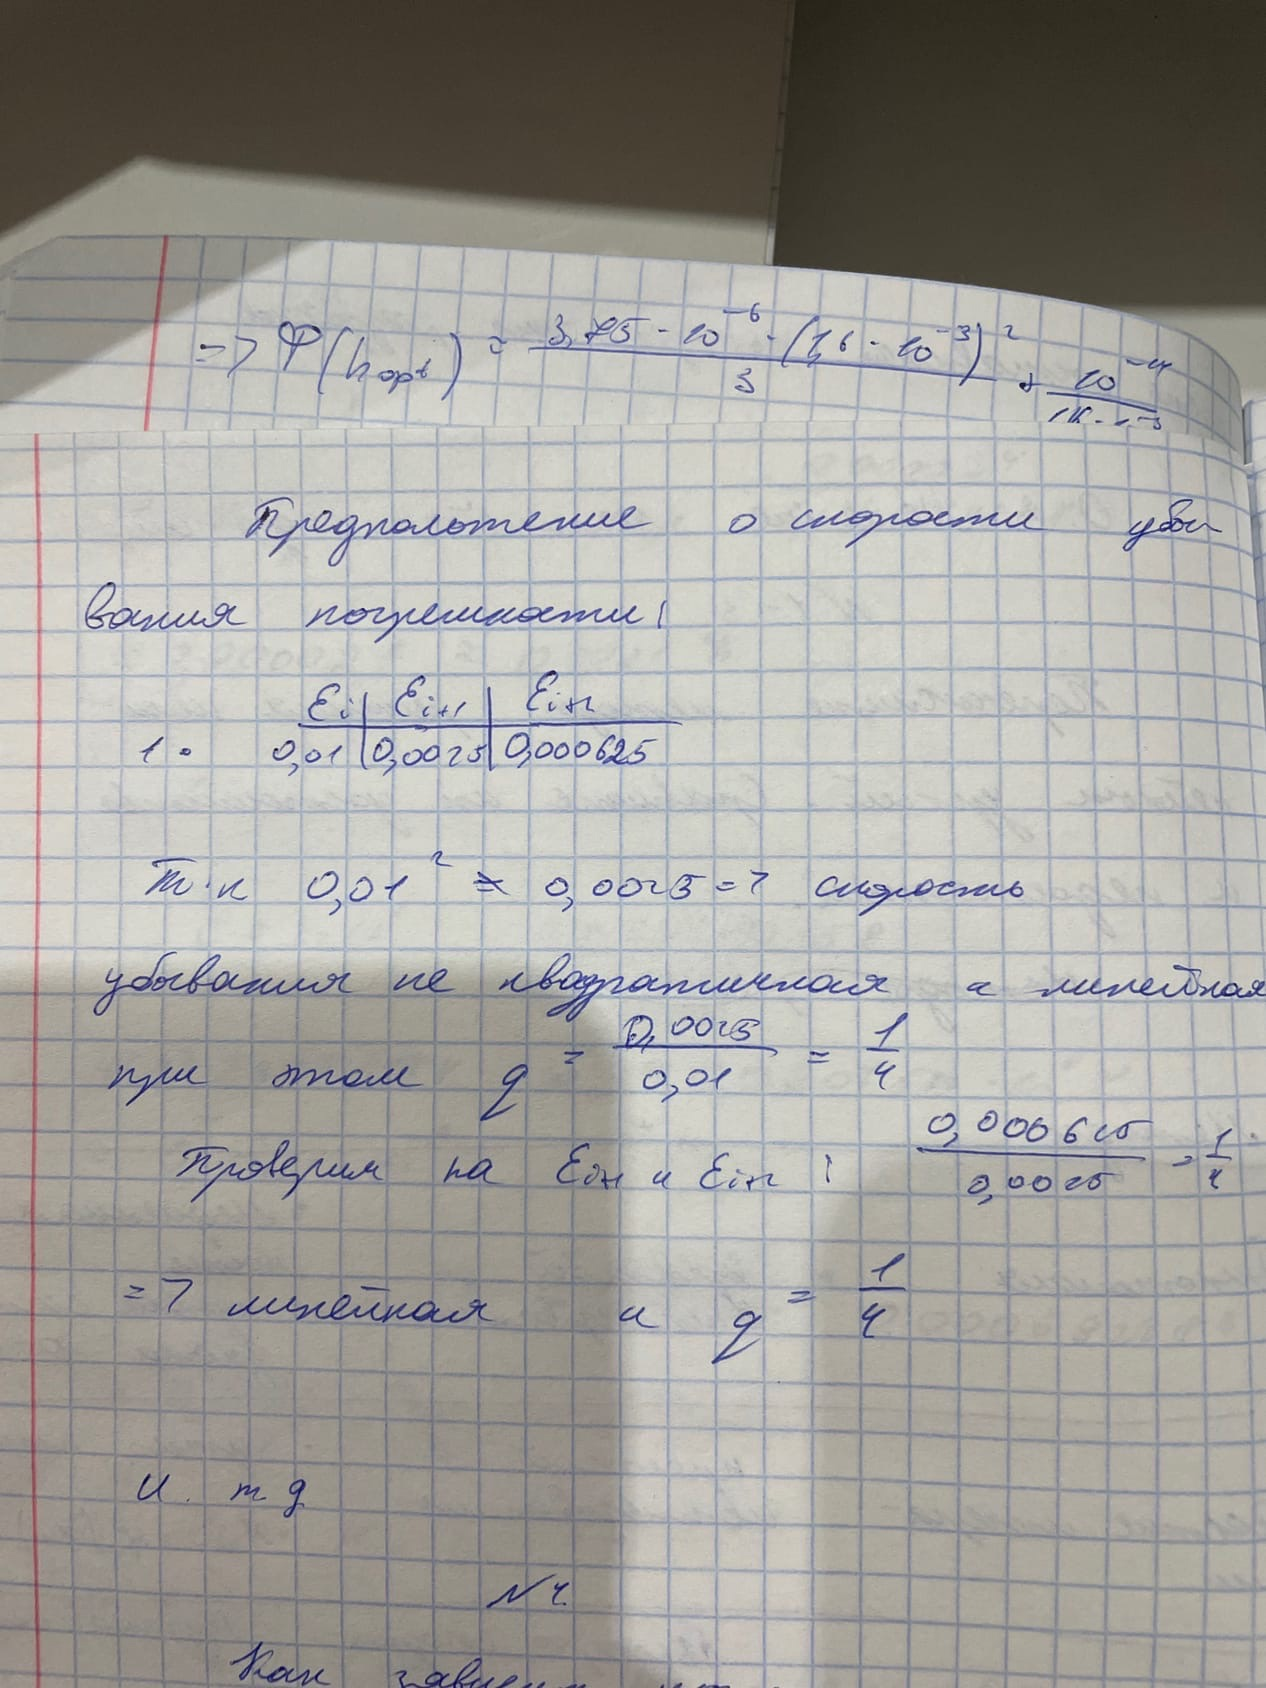 => φ(hopt) = 3,75 · 10^-6 · (1,6 · 10^-3)^2 / 3 + 10^-4 /
Предположение о скорости убы
вания погрешности:
Ei | Ei+1 | Ei+2
1. 0,01 | 0,0025 | 0,000625
Т.к 0,01^2 ≠ 0,0025 => скорость
убывания не квадратичная а линейная
при этом q = 0,0025 / 0,01 = 1/4
Проверим на Ei+1 и Ei+2: 0,000625 / 0,0025 = 1/4
=> линейная и q = 1/4
И. т д
№4.
Как зависит